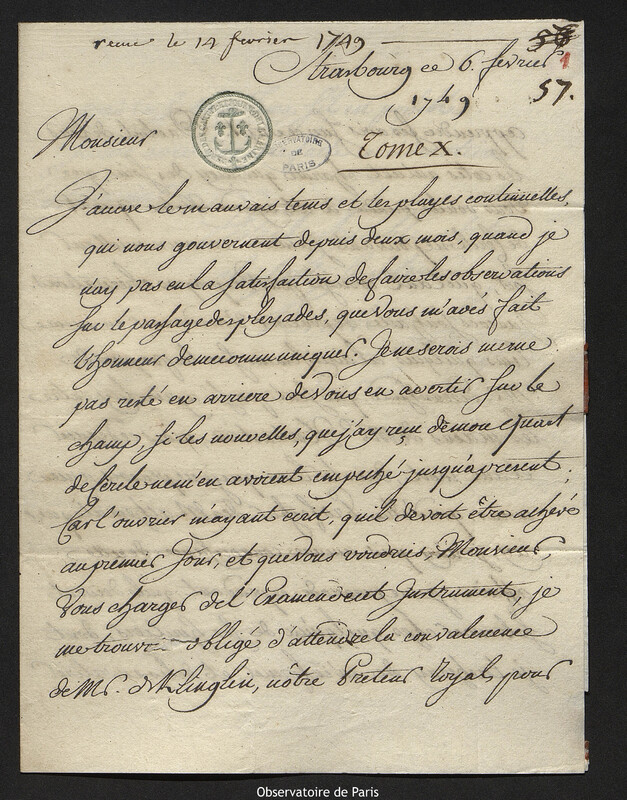 reçue le 14 fevrier 1749
58
1
57.
Strasbourg ce 6. fevrier
1749
Monsieur
OBSERVATOIRE DE PARIS
Tome X.
J'accuse le mauvais tems et les pluyes continuelles,
qui nous gouvernent depuis deux mois, quand je
n'ay pas eu la satisfaction de faire les observations
sur le passage des pleyades, que vous m'avés fait
l'honneur de me communiquer. Je ne serois meme
pas resté en arriere de vous en avertir sur le
champ, si les nouvelles, que j'ay reçu de mon Quart
de Cercle ne m'en avoient empeché jusqu'apresent;
Car l'ouvrier m'ayant ecrit, qu'il devoit être achevé
au premier Jour, et que vous voudriés, Monsieur,
Vous charger de l'Examen de cet Instrument, je
me trouvois obligé d'attendre la convalescence
de Mr. de Klinglin, nôtre Preteur Royal, pour
Observatoire de Paris